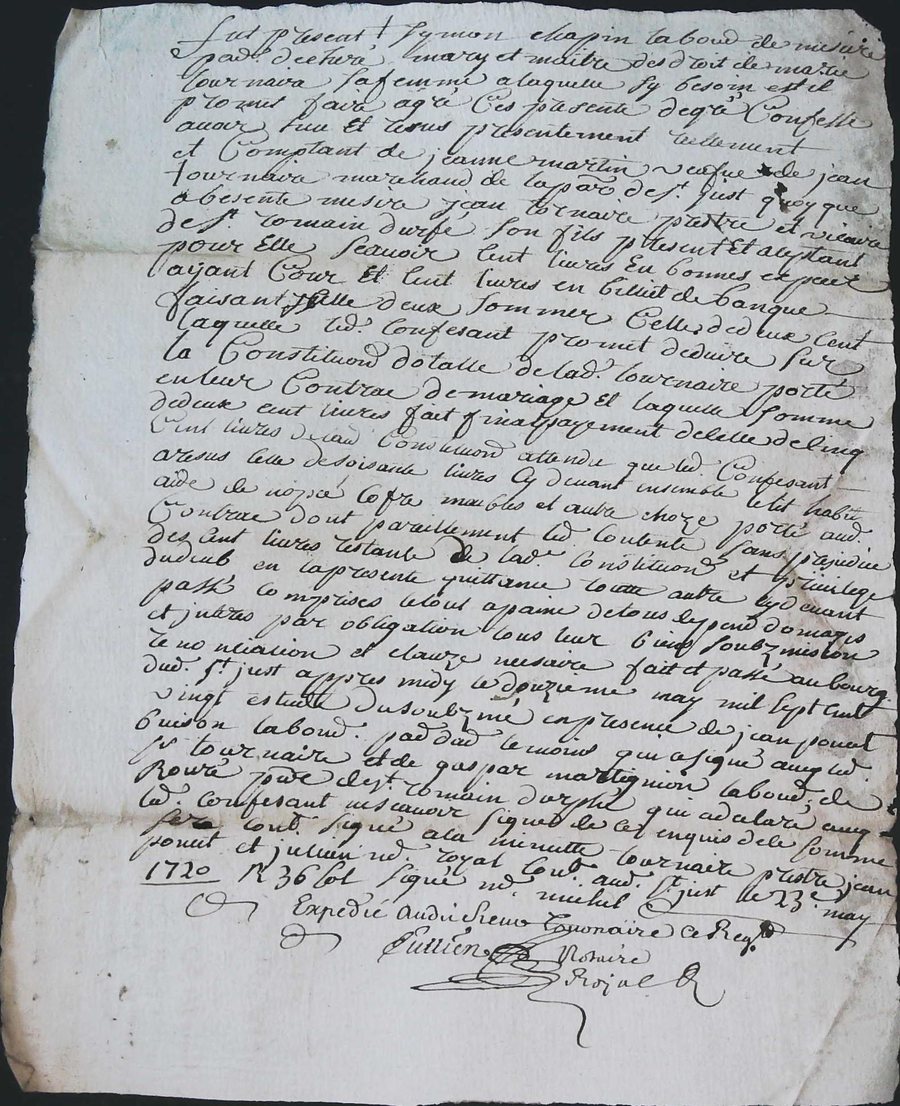 fut present symon chapin laboud de mesire
pad. d'echere mary et maitre des droit de marie
tournaire sa femme a laquelle sy besoin est il
promet faire agré ces presente de gré Confesse
avoir heu et resus presentement reellement
et Comptant de jeanne martin veefue de jean
tournaire marchand de la paro de st. just quoy que
absente mesire jean tornaire prestre et vicaire
de st. romain d'urfé son fils present et aceptant
pour elle scauoir cent livres en bonnes espece
ayant Cour et cent livres en billiet de banque
faisant les deux sommes celle de deux cent
laquelle led. confesant promet deduire sur
la Constituon dotalle de lad. tournaire porté
en leur Contrac de mariage et laquelle somme
de deux cent livres fait final payement de celle de cinq
Cent livres de lad Constituon attendu que led Confesant
a resus celle de soisante livres cy devant ensemble le lit habit
aide de nopce cofre meubles et autre choze porté aud.
Contrac dont pareillement led. contente sans prejudice
des cent livres restante de lad. constituon et privilege
dudeub en la presente quittance toutte autre cy devant
passé comprises le tout a paine de tous despend domages
et jnteres par obligation tous leur biens soubzmission
renonciation et clauze necesaire fait et passé au bourg
dud. st. just appres midy le douzieme may mil sept cent
vingt estude du soubzné en presence de jean ponut
buison laboud. pad dad temoins qui a signé aueq led.
sr tournaire et de gaspar martignon laboud. de
Rouré pare de st. romain d'urphé qui a declaré aueq
led. confesant ne scauoir signer de ce enquis de le somme
sera cont. signé a la minutte tournaire prestre jean
ponut et jullien no. royal cont. aud. st. just le 23e may
1720 R 36 sol signé no. michel
Expedié audit sieur Tournaire ce Req.
Jullien Notaire
Royal